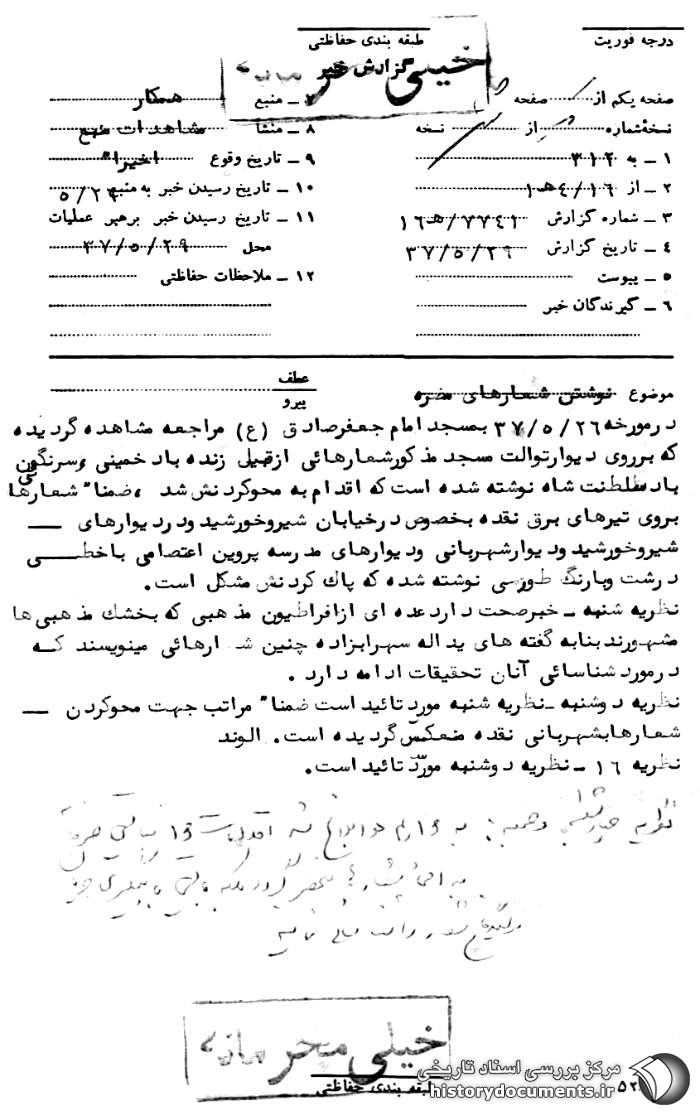 درجه فوریت
طبقه بندی حفاظتی
گزارش خبر
خیلی محرمانه
صفحه یکم از صفحه
نسخهٔ شماره از نسخه
۱ ــ به ۳۱۲
۲ ــ از ۴/۱۶هـ۱
۳ ــ شماره گزارش ۱۶هـ/۷۷۴۱
۴ ــ تاریخ گزارش ۳۷/۵/۲۹
۵ ــ پیوست
۶ ــ گیرندگان خبر
۷ ــ منبع همکار
۸ ــ منشأ مشاهدات منبع
۹ ــ تاریخ وقوع اخیرا"
۱۰ ــ تاریخ رسیدن خبر به منبع ۵/۲۹
۱۱ ــ تاریخ رسیدن خبر برهبر عملیات
محل ۳۷/۵/۲۹
۱۲ ــ ملاحظات حفاظتی
موضوع نوشتن شعارهای مضره
عطف
پیرو
درمورخه ۳۷/۵/۲۶ بمسجد امام جعفرصادق (ع) مراجعه مشاهده گردیده
که برروی دیوارتوالت مسجد مذکورشعارهائی ازقبیل زنده باد خمینی وسرنگون
باد سلطنت شاه نوشته شده است که اقدام به محوکردنش شد ، ضمنا" شعارها
ئی
بروی تیرهای برق نقده بخصوص درخیابان شیروخورشید ودردیوارهای ــ
شیروخورشید ودیوارشهربانی ودیوارهای مدرسه پروین اعتصامی باخطــی
درشت وبارنگ طوسی نوشته شده که پاک کردنش مشکل است.
نظریه شنبه ــ خبرصحت دارد عده ای ازافراطیون مذهبی که بخشک مذهبی ها
مشهورند بنابه گفته های یداله سهرابزاده چنین ش ارهائی مینویسند کــه
درمورد شناسائی آنان تحقیقات ادامه دارد .
نظریه دوشنبه ــ نظریه شنبه مورد تائید است ضمنا" مراتب جهت محوکردن ــ
شعارها بشهربانی نقده منعکس گردیده است. الوند
نظریه ۱۶ ــ نظریه دوشنبه مورد تائید است.
خیلی محرمانه
طبقه بندی حفاظتی
۵۲
مرکز بررسی اسناد تاریخی
historydocuments.ir